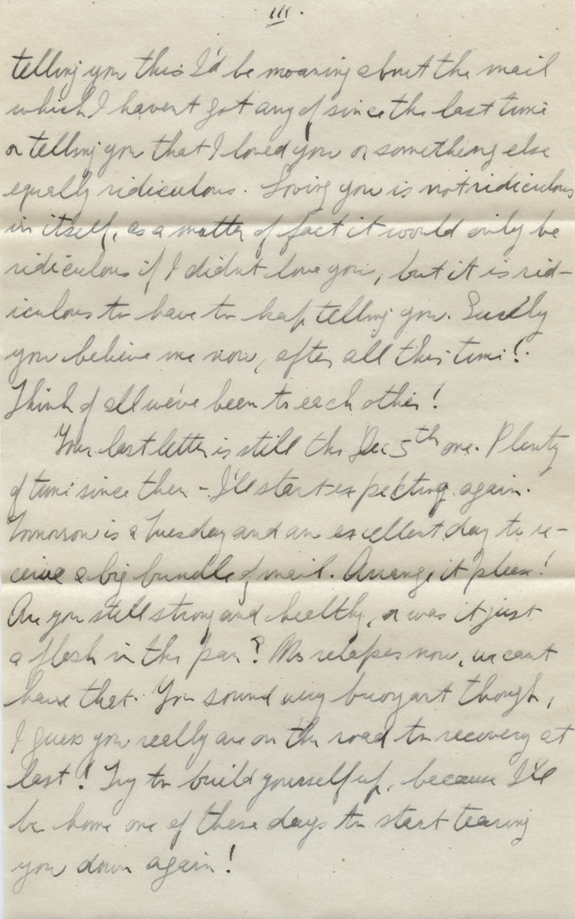 III.
telling you this I'd be moaning about the mail
which I haven't got any of since the last time
or telling you that I loved you or something else
equally ridiculous. Loving you is not ridiculous
in itself, as a matter of fact it would only be
ridiculous if I didn't love you, but it is rid-
iculous to have to keep telling you. Surely
you believe me now, after all this time!
Think of all we've been to each other!
Your last letter is still the Dec 5th one. Plenty
of time since then - I'll start expecting again.
Tomorrow is a Tuesday and an excellent day to re-
ceive a big bundle of mail. Arrange it please!
Are you still strong and healthy, or was it just
a flash in the pan? No relapses now, we can't
have that. You sound very buoyant though,
I guess you really are on the road to recovery at
last! Try to build yourself up, because I'll
be home one of these days to start tearing
you down again!